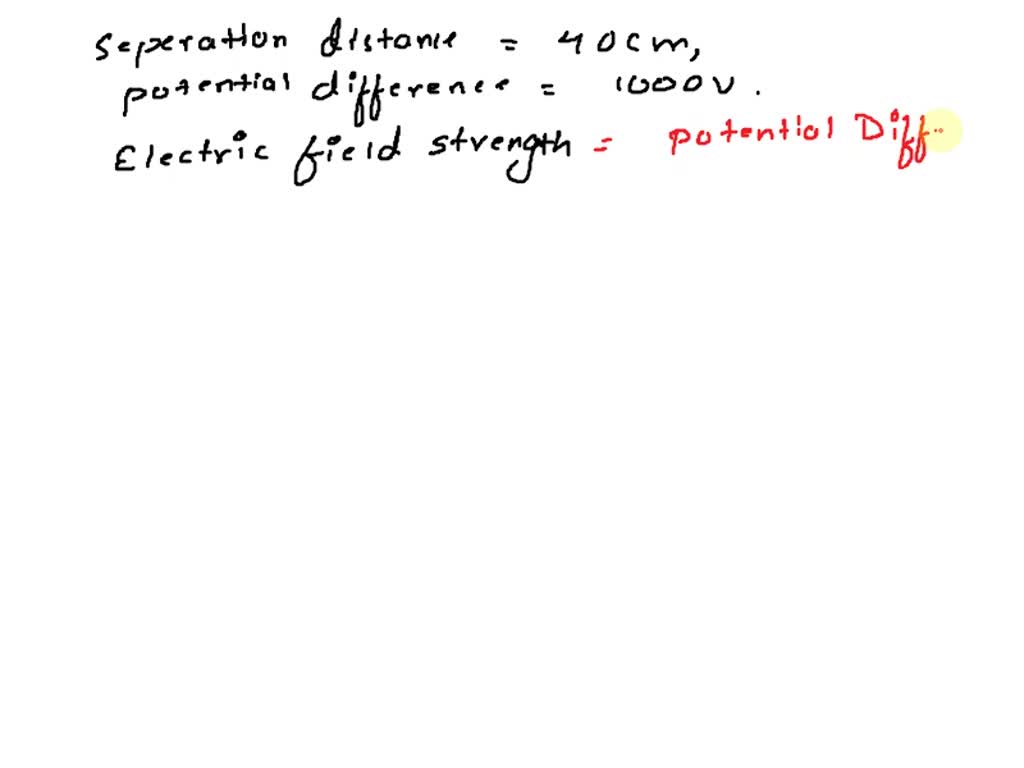 seperation distance = 40cm,
potential difference = 1000V.
Electric field strength = potential Diff..